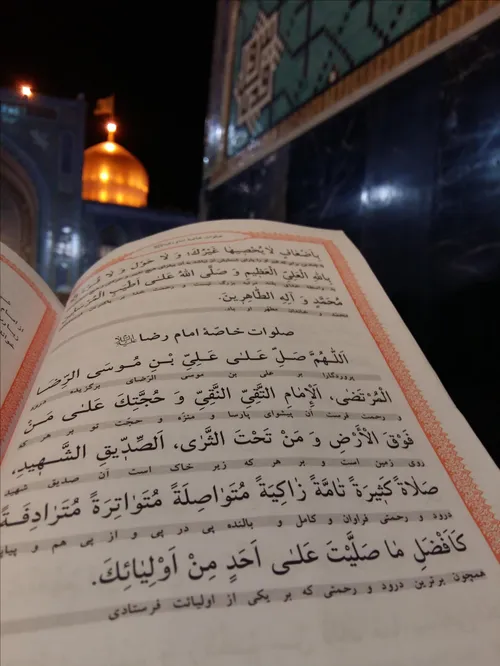 بِاَضْعَافٍ لَا يُحْصِيهَا غَيْرُكَ، وَ لَا حَوْلَ وَ لَا
بِاللّٰهِ الْعَلِيِّ الْعَظِيمِ وَ صَلَّى اللّٰهُ عَلىٰ اَطْيَبِ
مُحَمَّدٍ وَ آلِهِ الطَّاهِرِينَ.
صلوات خاصّهٔ امام رضا
اَللّٰهُمَّ صَلِّ عَلىٰ عَلِيِّ بْنِ مُوسَى الرِّضَا
پروردگارا بر علی بن موسی الرّضای برگزیده درود
الْمُرْتَضىٰ، اَلْاِمَامِ التَّقِيِّ النَّقِيِّ وَ حُجَّتِكَ عَلىٰ مَنْ
و رحمت فرست آن پیشوای پارسا و منزّه و حجّت تو بر هر که
فَوْقَ الْأَرْضِ وَ مَنْ تَحْتَ الثَّرىٰ، اَلصِّدِّيقِ الشَّهِيدِ،
روی زمین است و بر هر که زیر خاک است آن صدیق شهید
صَلَاةً كَثِيرَةً تَامَّةً زَاكِيَةً مُتَوَاصِلَةً مُتَوَاتِرَةً مُتَرَادِفَةً
درود و رحمتی فراوان و کامل و بالنده پی در پی و از پی هم و
كَاَفْضَلِ مٰا صَلَّيْتَ عَلىٰ اَحَدٍ مِنْ اَوْلِيٰائِكَ.
همچون برترین درود و رحمتی که بر یکی از اولیائت فرستادی